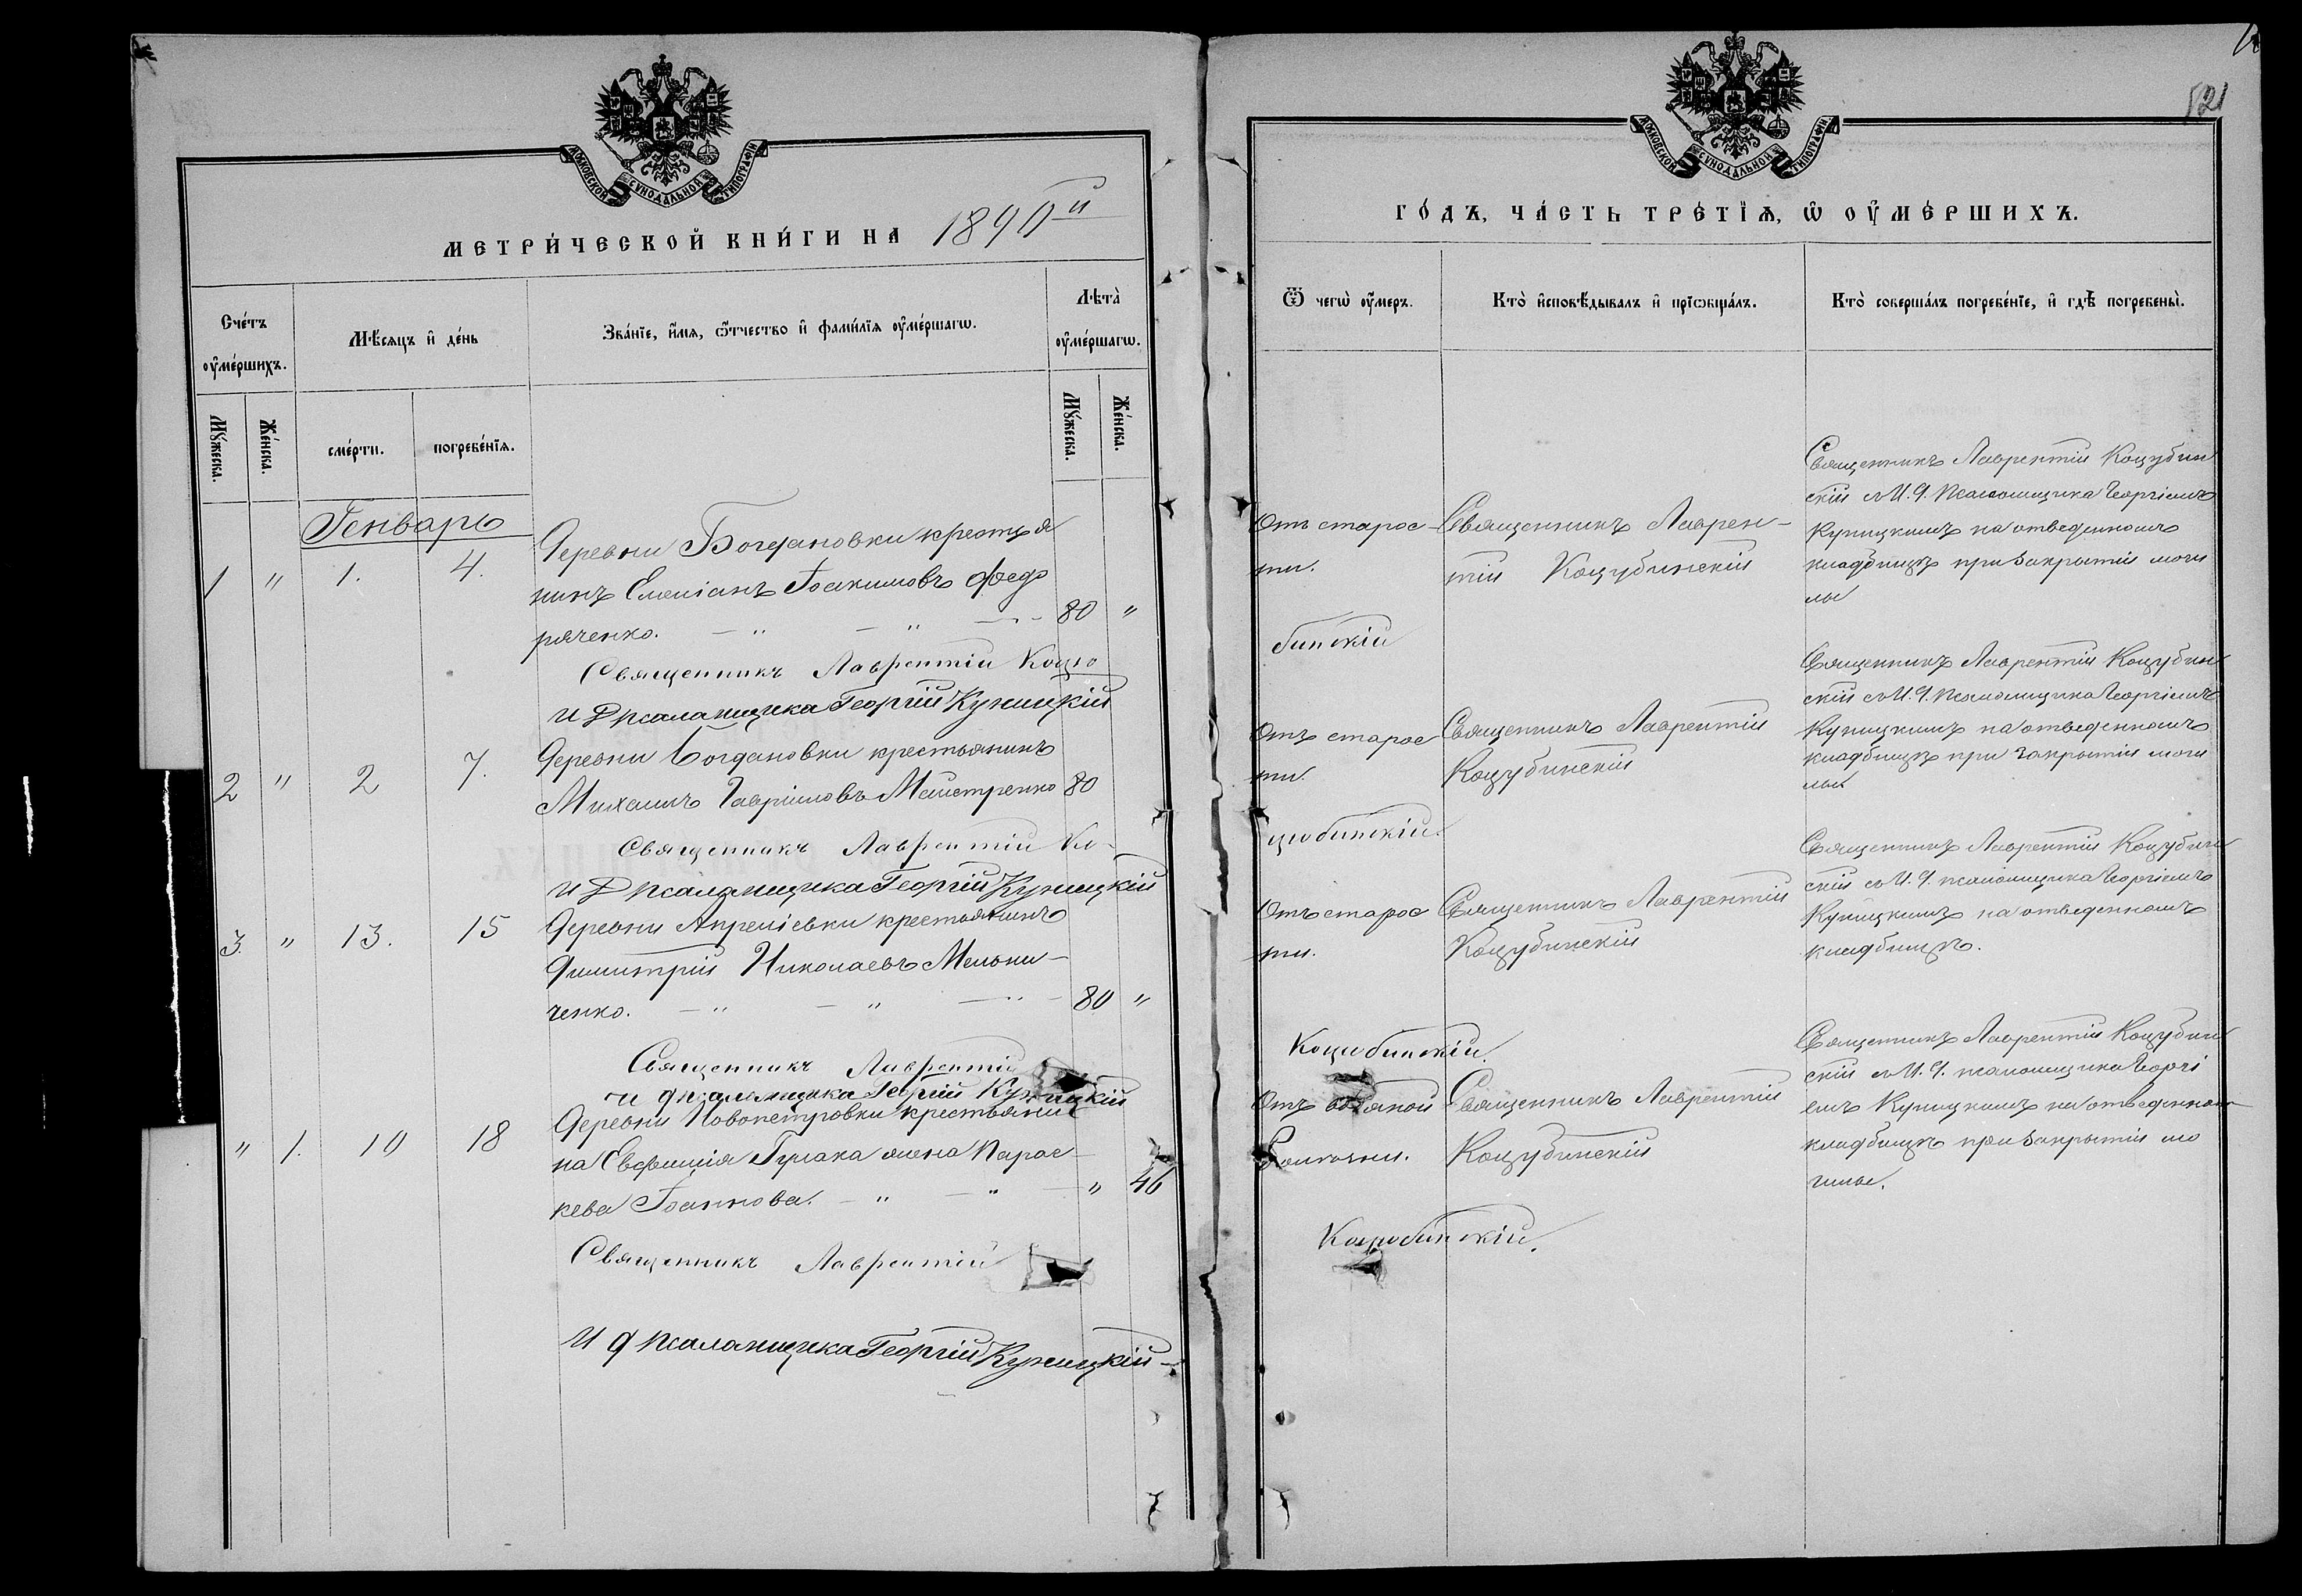 МОСКОВСКОЙ СѴНОДАЛЬНОЙ ТИПОГРАФІИ
МЕТРИ́ЧЕСКОЙ КНИ́ГИ НА 1890й
Сче́тъ оу҆ме́ршихъ.
Мѣ́сяцъ и҆ де́нь
Зва́нїе, и҆́мя, ѻ҆́тчество и҆ фами́лїя оу҆ме́ршагѡ.
Лѣта̀ оу҆ме́ршагѡ.
Мꙋ́жеска.
Же́нска.
сме́рти.
погребе́нїя.
Мꙋ́жеска.
Же́нска.
Генварь
1 " 1. 4.
Деревни Богдановки крестья
нинъ Емеліанъ Іоакимовъ Федо
ряченко. — " — " — 80 "
Священникъ Лаврентій Коцю
И Д псаломщика Георгій Куницкій
2 " 2 7.
Деревни Богдановки крестьянинъ
Михаилъ Гавріиловъ Маистренко 80
Священникъ Лаврентій Ко-
И Д псаломщика Георгій Куницкій
3. " 13. 15
Деревни Апреліевки крестьянинъ
Димитрій Николаевъ Мельни-
ченко. — " — " — " — 80 "
Священникъ Лаврентій
и д псаломщика Георгій Куницкій
" 1. 10 18
Деревни Новопетровки крестьяни
на Евфимія жена Парас-
кева Іоаннова. — " — " — " 46
Священникъ Лаврентій
И д псаломщика Георгій Куницкій
521
МОСКОВСКОЙ СѴНОДАЛЬНОЙ ТИПОГРАФІИ
ГО́ДЪ, ЧА́СТЬ ТРЕ́ТЇѦ, Ѡ҆ ОУ҆МЕ́РШИХЪ.
Ѿ чегѡ̀ оу҆́меръ.
Кто̀ и҆сповѣ́дывалъ и҆ прїѡбща́лъ.
Кто̀ соверша́лъ погребе́нїе, и҆ гдѣ̀ погребены̀.
Отъ старос-
ти.
Священникъ Лаврен-
тій Коцубинскій
Священникъ Лаврентій Коцубин
скій съ И. Д. Псаломщика Георгіемъ
Куницкимъ на отведенномъ
кладбищѣ при закрытіи моги
лы
бинскій
Отъ старос
ти.
Священникъ Лаврентій
Коцубинскій
Священникъ Лаврентій Коцубин
скій съ И. Д. Псаломщика Георгіемъ
Куницкимъ на отведенномъ
кладбищѣ при закрытіи моги
лы
цюбинскій.
Отъ старос
ти.
Священникъ Лаврентій
Коцубинскій
Священникъ Лаврентій Коцубин
скій съ И. Д. псаломщика Георгіемъ
Куницкимъ на отведенномъ
кладбищѣ.
Коцюбинскій.
Отъ
Священникъ Лаврентій
Коцубинскій
Священникъ Лаврентій Коцубин
скій съ И. Д. псаломщика Георгі
емъ Куницкимъ на отведенном
кладбищѣ при закрытіи мо
гилы.
Коцюбинскій.